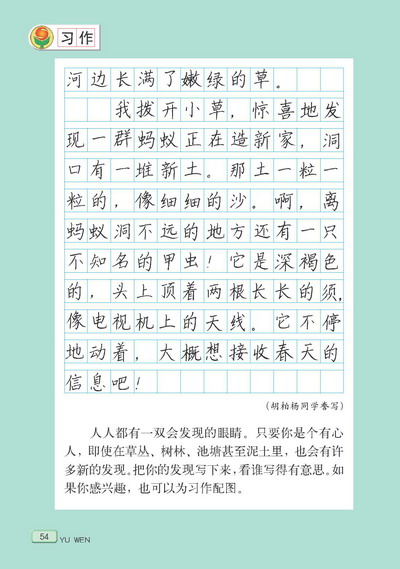 习作
河边长满了嫩绿的草。
我拨开小草，惊喜地发
现一群蚂蚁正在造新家，洞
口有一堆新土。那土一粒一
粒的，像细细的沙。啊，离
蚂蚁洞不远的地方还有一只
不知名的甲虫！它是深褐色
的，头上顶着两根长长的须，
像电视机上的天线。它不停
地动着，大概想接收春天的
信息吧！
（胡柏杨同学誊写）
人人都有一双会发现的眼睛。只要你是个有心
人，即使在草丛、树林、池塘甚至泥土里，也会有许
多新的发现。把你的发现写下来，看谁写得有意思。如
果你感兴趣，也可以为习作配图。
54
YU WEN